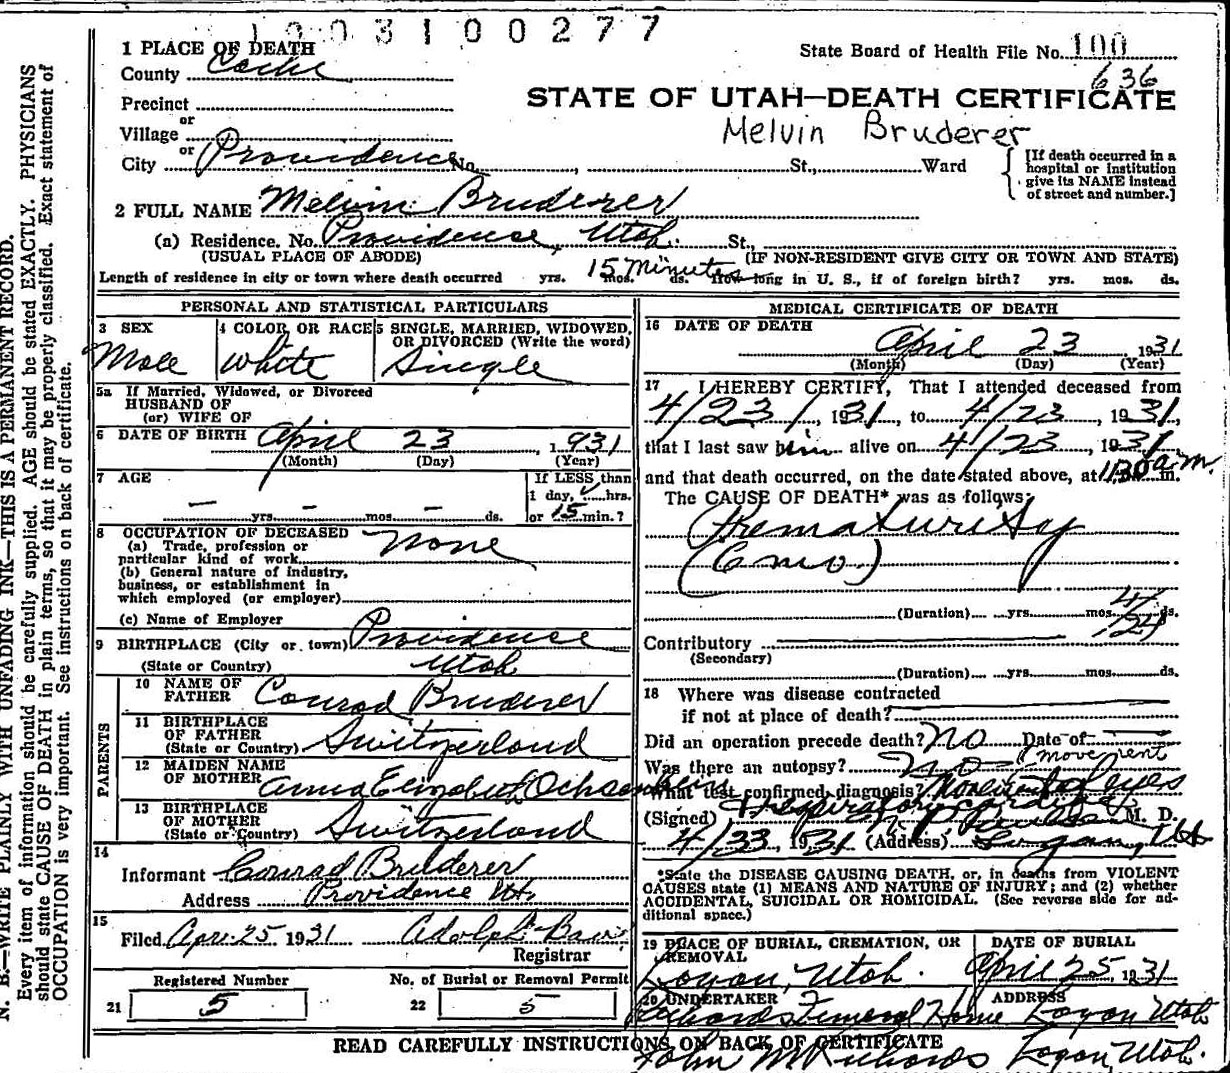 1003100277
1 PLACE OF DEATH
State Board of Health File No. 100
County Cache
636
Precinct
or
STATE OF UTAH—DEATH CERTIFICATE
Village
Melvin Bruderer
or
City Providence No. St., Ward
[If death occurred in a hospital or institution give its NAME instead of street and number.]
2 FULL NAME Melvin Bruderer
(a) Residence. No. Providence, Utah. St.,
(USUAL PLACE OF ABODE) (IF NON-RESIDENT GIVE CITY OR TOWN AND STATE)
Length of residence in city or town where death occurred yrs. 15 Minutes mos. ds. How long in U. S., if of foreign birth? yrs. mos. ds.
PERSONAL AND STATISTICAL PARTICULARS
3 SEX 4 COLOR OR RACE 5 SINGLE, MARRIED, WIDOWED,
OR DIVORCED (Write the word)
Male White Single
5a If Married, Widowed, or Divorced
HUSBAND OF
(or) WIFE OF
6 DATE OF BIRTH April 23, 1931
(Month) (Day) (Year)
7 AGE If LESS than
1 day, hrs.
— yrs. — mos. — ds. or 15 min.?
8 OCCUPATION OF DECEASED
(a) Trade, profession or
particular kind of work None
(b) General nature of industry,
business, or establishment in
which employed (or employer)
(c) Name of Employer
9 BIRTHPLACE (City or town) Providence
(State or Country) Utah
PARENTS
10 NAME OF
FATHER Conrad Bruderer
11 BIRTHPLACE
OF FATHER
(State or Country) Switzerland
12 MAIDEN NAME
OF MOTHER Anna Elizabeth
13 BIRTHPLACE
OF MOTHER
(State or Country) Switzerland
14
Informant Conrad Bruderer
Address Providence Ut.
15
Filed Apr. 25 1931 Adolph
Registrar
Registered Number No. of Burial or Removal Permit
21 5 22 5
MEDICAL CERTIFICATE OF DEATH
16 DATE OF DEATH
April 23 1931
(Month) (Day) (Year)
17 I HEREBY CERTIFY, That I attended deceased from
4/23, 1931, to 4/23, 1931,
that I last saw him alive on 4/23, 1931
and that death occurred, on the date stated above, at 1:30 a.m.
The CAUSE OF DEATH* was as follows:
Prematurity
(Duration) yrs. mos. ds.
Contributory
(Secondary)
(Duration) yrs. mos. ds.
18 Where was disease contracted
if not at place of death?
Did an operation precede death? No Date of
Was there an autopsy? No
What test confirmed diagnosis?
(Signed) M. D.
4/23, 1931 (Address) Logan, Ut
*State the DISEASE CAUSING DEATH, or, in deaths from VIOLENT
CAUSES state (1) MEANS AND NATURE OF INJURY; and (2) whether
ACCIDENTAL, SUICIDAL OR HOMICIDAL. (See reverse side for ad-
ditional space.)
19 PLACE OF BURIAL, CREMATION, OR REMOVAL DATE OF BURIAL
Logan, Utah. April 25, 1931
20 UNDERTAKER ADDRESS
Richards Funeral Home Logan Utah
READ CAREFULLY INSTRUCTIONS ON BACK OF CERTIFICATE
John M Richards Logan, Utah.
N. B.—WRITE PLAINLY WITH UNFADING INK—THIS IS A PERMANENT RECORD.
Every item of information should be carefully supplied. AGE should be stated EXACTLY. PHYSICIANS
should state CAUSE OF DEATH in plain terms, so that it may be properly classified. Exact statement of
OCCUPATION is very important. See instructions on back of certificate.